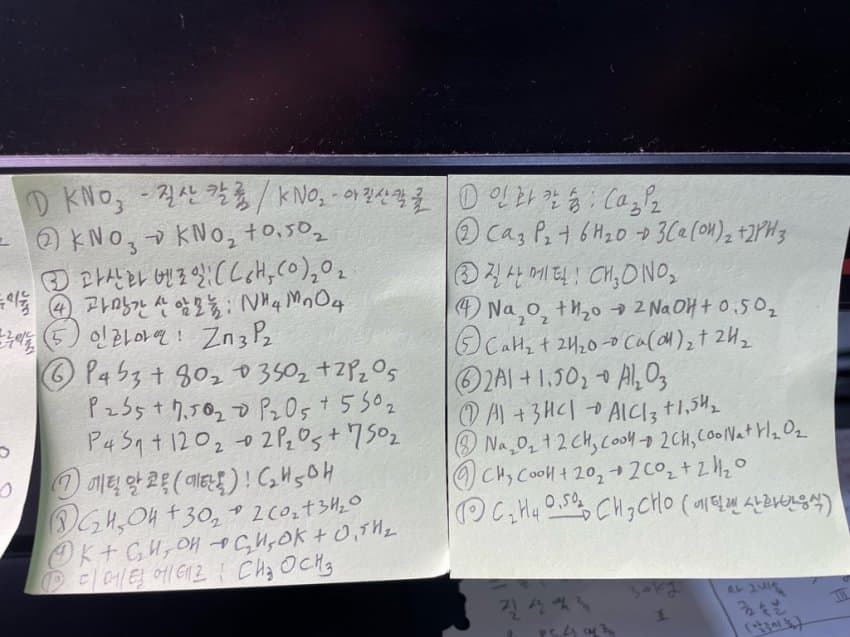 ① KNO₃ - 질산칼륨 / KNO₂ - 아질산칼륨
② KNO₃ → KNO₂ + 0.5O₂
③ 과산화벤조일: (C₆H₅CO)₂O₂
④ 과망간산암모늄: NH₄MnO₄
⑤ 인화아연: Zn₃P₂
⑥ P₄S₃ + 8O₂ → 3SO₂ + 2P₂O₅
P₂S₅ + 7.5O₂ → P₂O₅ + 5SO₂
P₄S₇ + 12O₂ → 2P₂O₅ + 7SO₂
⑦ 에틸알코올(에탄올): C₂H₅OH
⑧ C₂H₅OH + 3O₂ → 2CO₂ + 3H₂O
⑨ K + C₂H₅OH → C₂H₅OK + 0.5H₂
⑩ 디메틸에테르: CH₃OCH₃
① 인화칼슘: Ca₃P₂
② Ca₃P₂ + 6H₂O → 3Ca(OH)₂ + 2PH₃
③ 질산메틸: CH₃ONO₂
④ Na₂O₂ + H₂O → 2NaOH + 0.5O₂
⑤ CaH₂ + 2H₂O → Ca(OH)₂ + 2H₂
⑥ 2Al + 1.5O₂ → Al₂O₃
⑦ Al + 3HCl → AlCl₃ + 1.5H₂
⑧ Na₂O₂ + 2CH₃COOH → 2CH₃COONa + H₂O₂
⑨ CH₃COOH + 2O₂ → 2CO₂ + 2H₂O
⑩ C₂H₄ 0.5O₂→ CH₃CHO (에틸렌 산화반응식)
질산염류 II